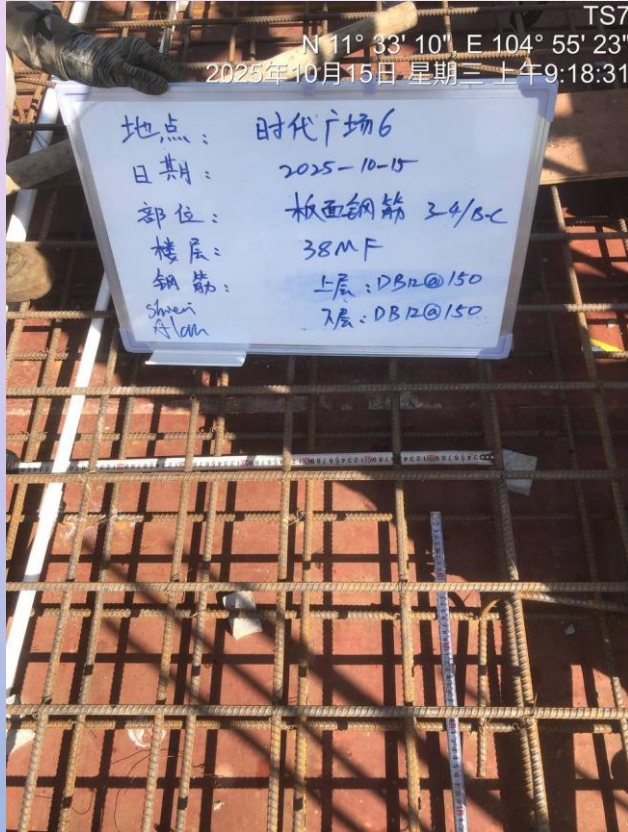 TS7
N 11° 33' 10", E 104° 55' 23"
2025年10月15日 星期三 上午9:18:31
地点： 时代广场6
日期： 2025-10-15
部位： 板面钢筋 3-4/B-C
楼层： 38MF
钢筋： 上层：DB12@150
下层：DB12@150
Alan